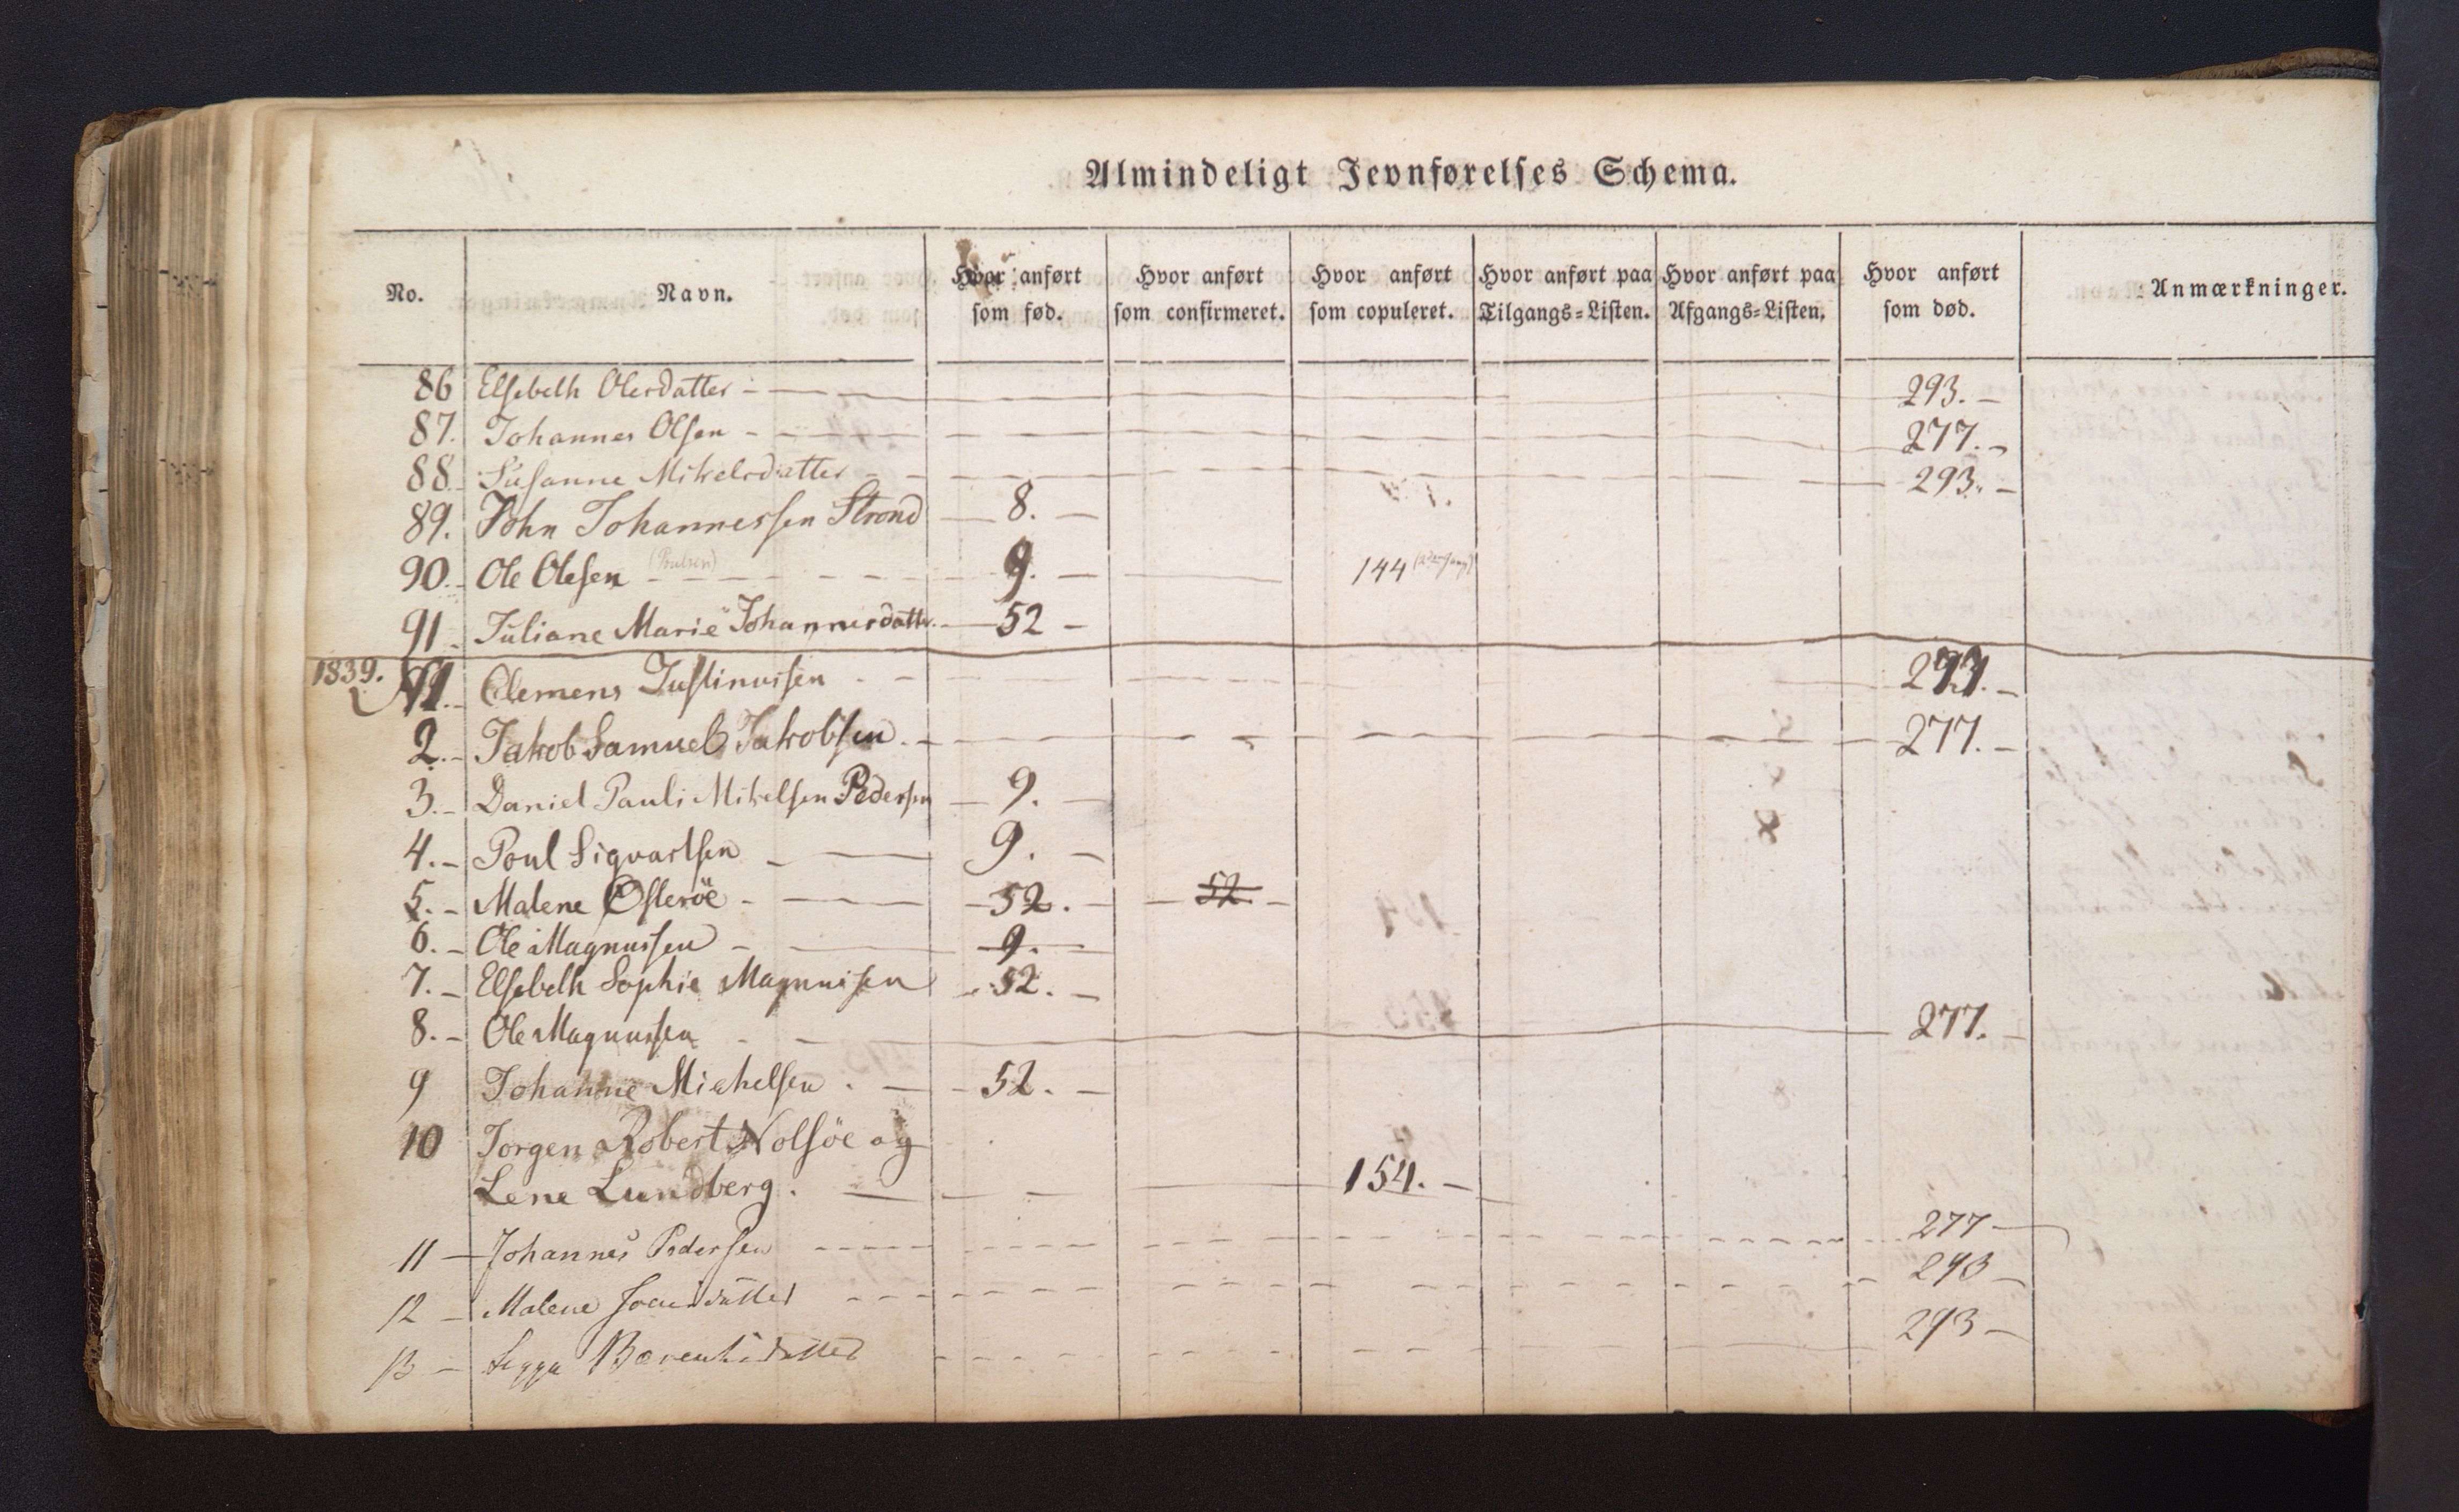 Almindeligt Jevnførelses Schema.
No. Navn. Hvor anført som fød. Hvor anført som confirmeret. Hvor anført som copuleret. Hvor anført paa Tilgangs-Listen. Hvor anført paa Afgangs-Listen. Hvor anført som død. Anmærkninger.
86 Elsebeth Olesdatter - 293. -
87. Johannes Olsen - 277. -
88. Susanne Mikelsdatter - 293. -
89. John Johannessen Strond 8. -
90. Ole Olesen (Poulsen) 9. - 144
91. Juliane Marie Johannesdatter. 52 -
1839. 1. Clemens Justinussen 293. -
2. - Jakob Samuel Jakobsen. - 277. -
3. - Daniel Pauli Mikelsen Pedersen 9. -
4. - Poul Sigvartsen - 9. -
5. - Malene Østeröe - 52. - 52 -
6. - Ole Magnussen - 9. -
7. - Elsebeth Sophie Magnussen 52. -
8. - Ole Magnussen - 277. -
9 Johanne Michelsen . - 52. -
10 Jorgen Robert Nolsöe og
Lene Lundberg. - 154. -
11 - Johannes Pedersen 277 -
12 - Malene Joensdatter 293 -
13 - Barentsdatter 293 -